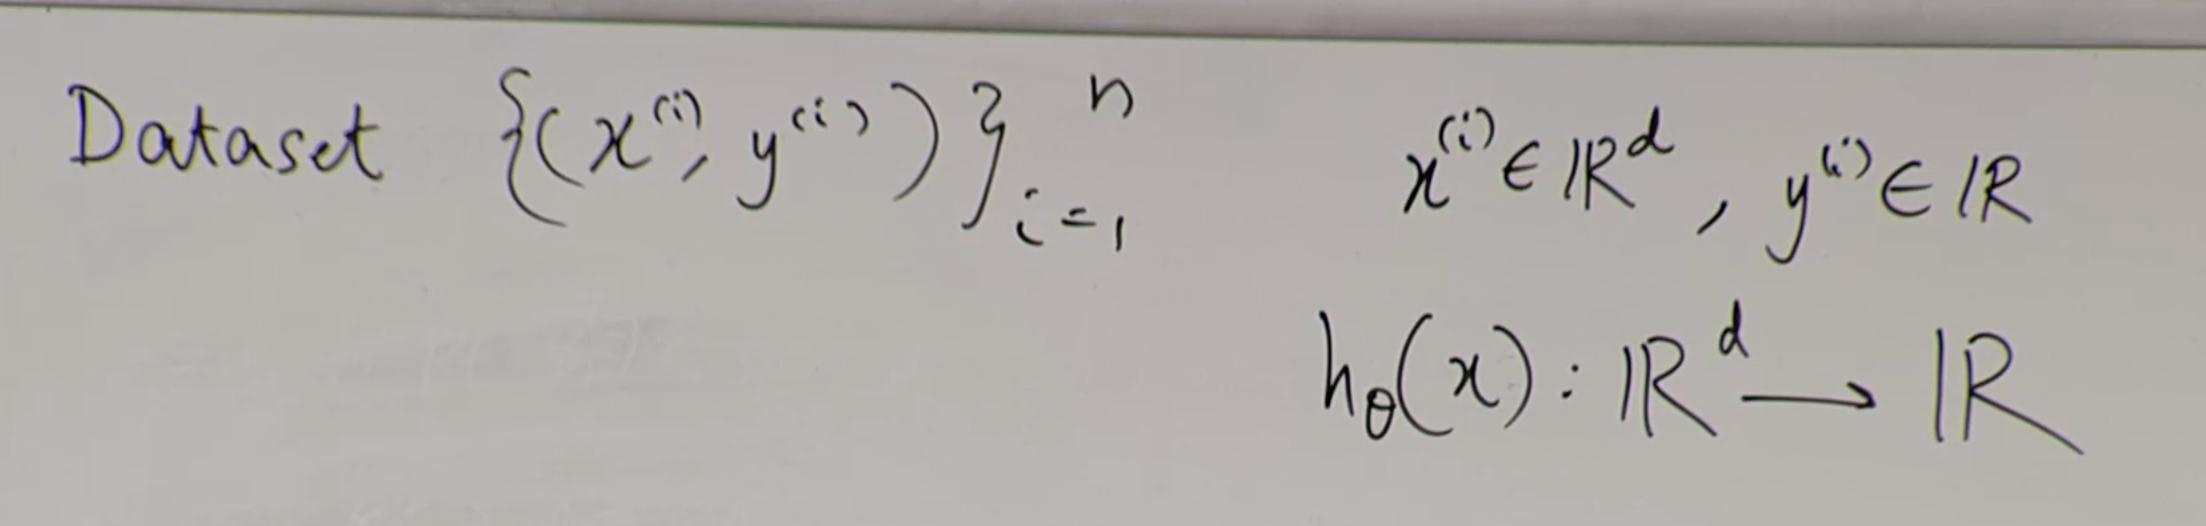 Dataset {(x⁽ⁱ⁾, y⁽ⁱ⁾)}ⁿᵢ₌₁ x⁽ⁱ⁾ ∈ ℝᵈ, y⁽ⁱ⁾ ∈ ℝ
h_θ(x) : ℝᵈ → ℝ